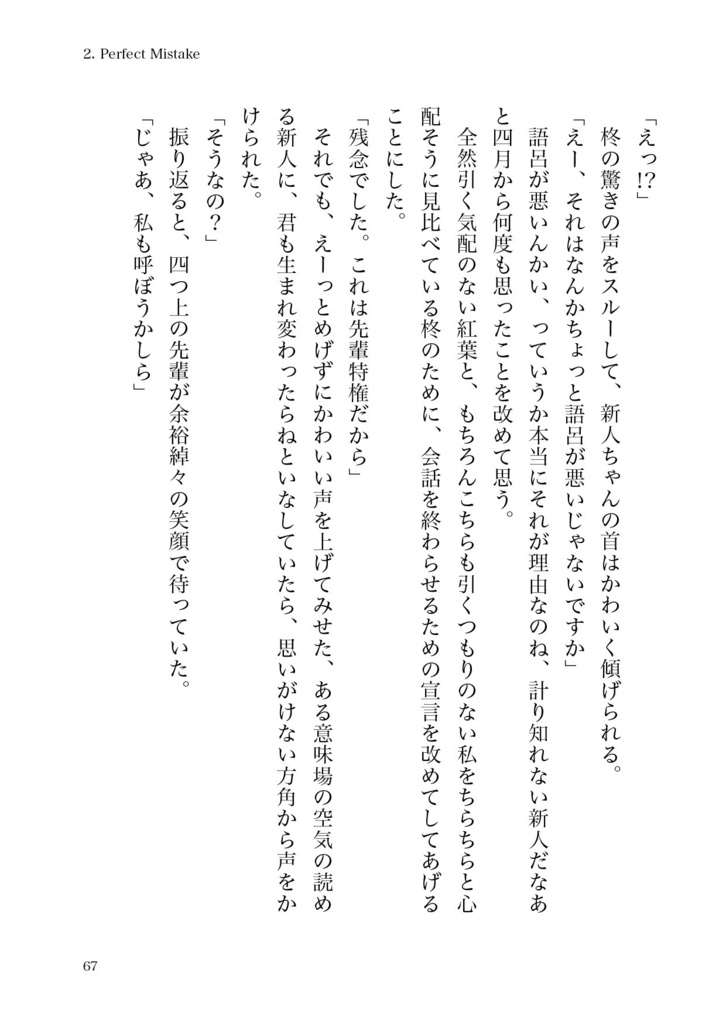 2. Perfect Mistake
「えっ!?」
　柊の驚きの声をスルーして、新人ちゃんの首はかわいく傾げられる。
「えー、それはなんかちょっと語呂が悪いじゃないですか」
　語呂が悪いんかい、っていうか本当にそれが理由なのね、計り知れない新人だなあ
と四月から何度も思ったことを改めて思う。
　全然引く気配のない紅葉と、もちろんこちらも引くつもりのない私をちらちらと心
配そうに見比べている柊のために、会話を終わらせるための宣言を改めてしてあげる
ことにした。
「残念でした。これは先輩特権だから」
　それでも、えーっとめげずにかわいい声を上げてみせた、ある意味場の空気の読め
る新人に、君も生まれ変わったらねといなしていたら、思いがけない方角から声をか
けられた。
「そうなの？」
　振り返ると、四つ上の先輩が余裕綽々の笑顔で待っていた。
「じゃあ、私も呼ぼうかしら」
67